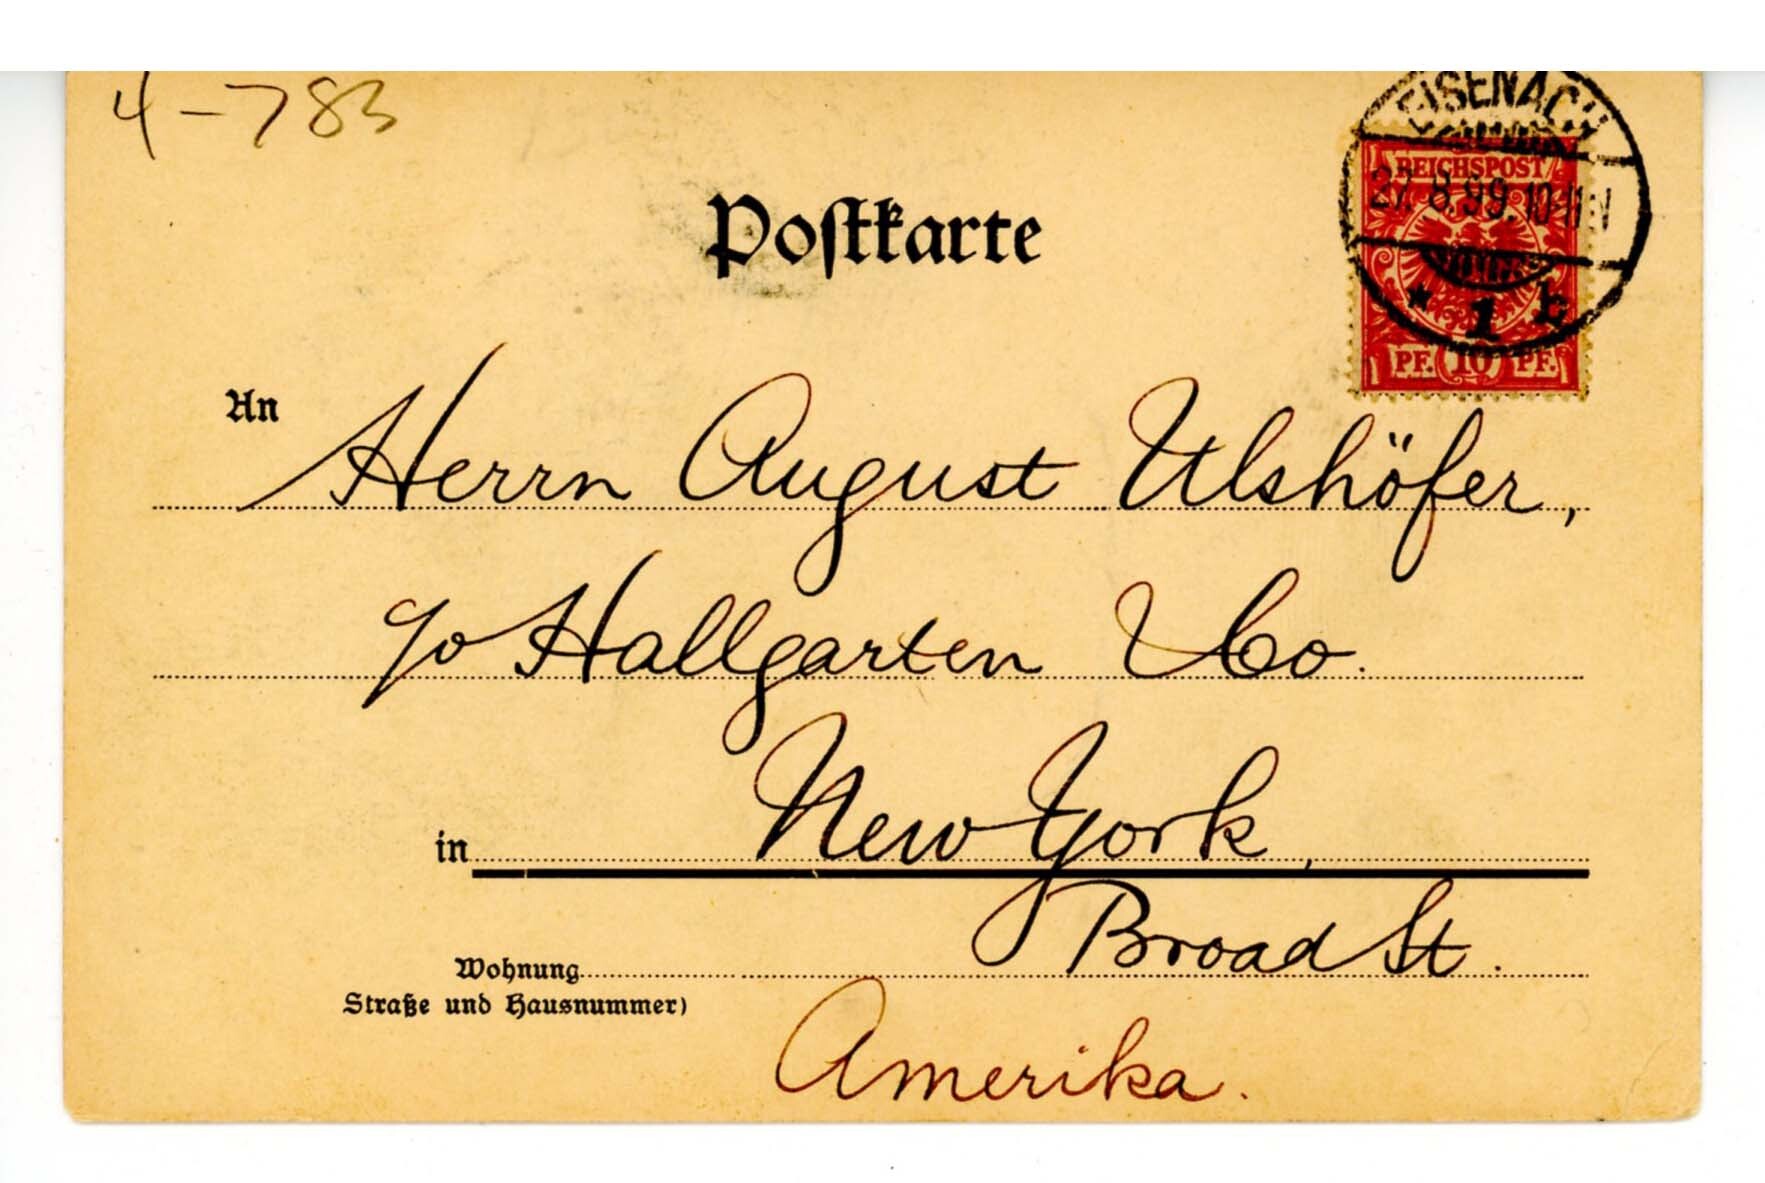 4-783
EISENACH
REICHSPOST
27.8.99.10-11N
* 1 b
PF. 10 PF.
Postkarte
An
Herrn August Ulshöfer,
c/o Hallgarten & Co.
in New York,
Broad St.
Wohnung
Straße und Hausnummer)
Amerika.